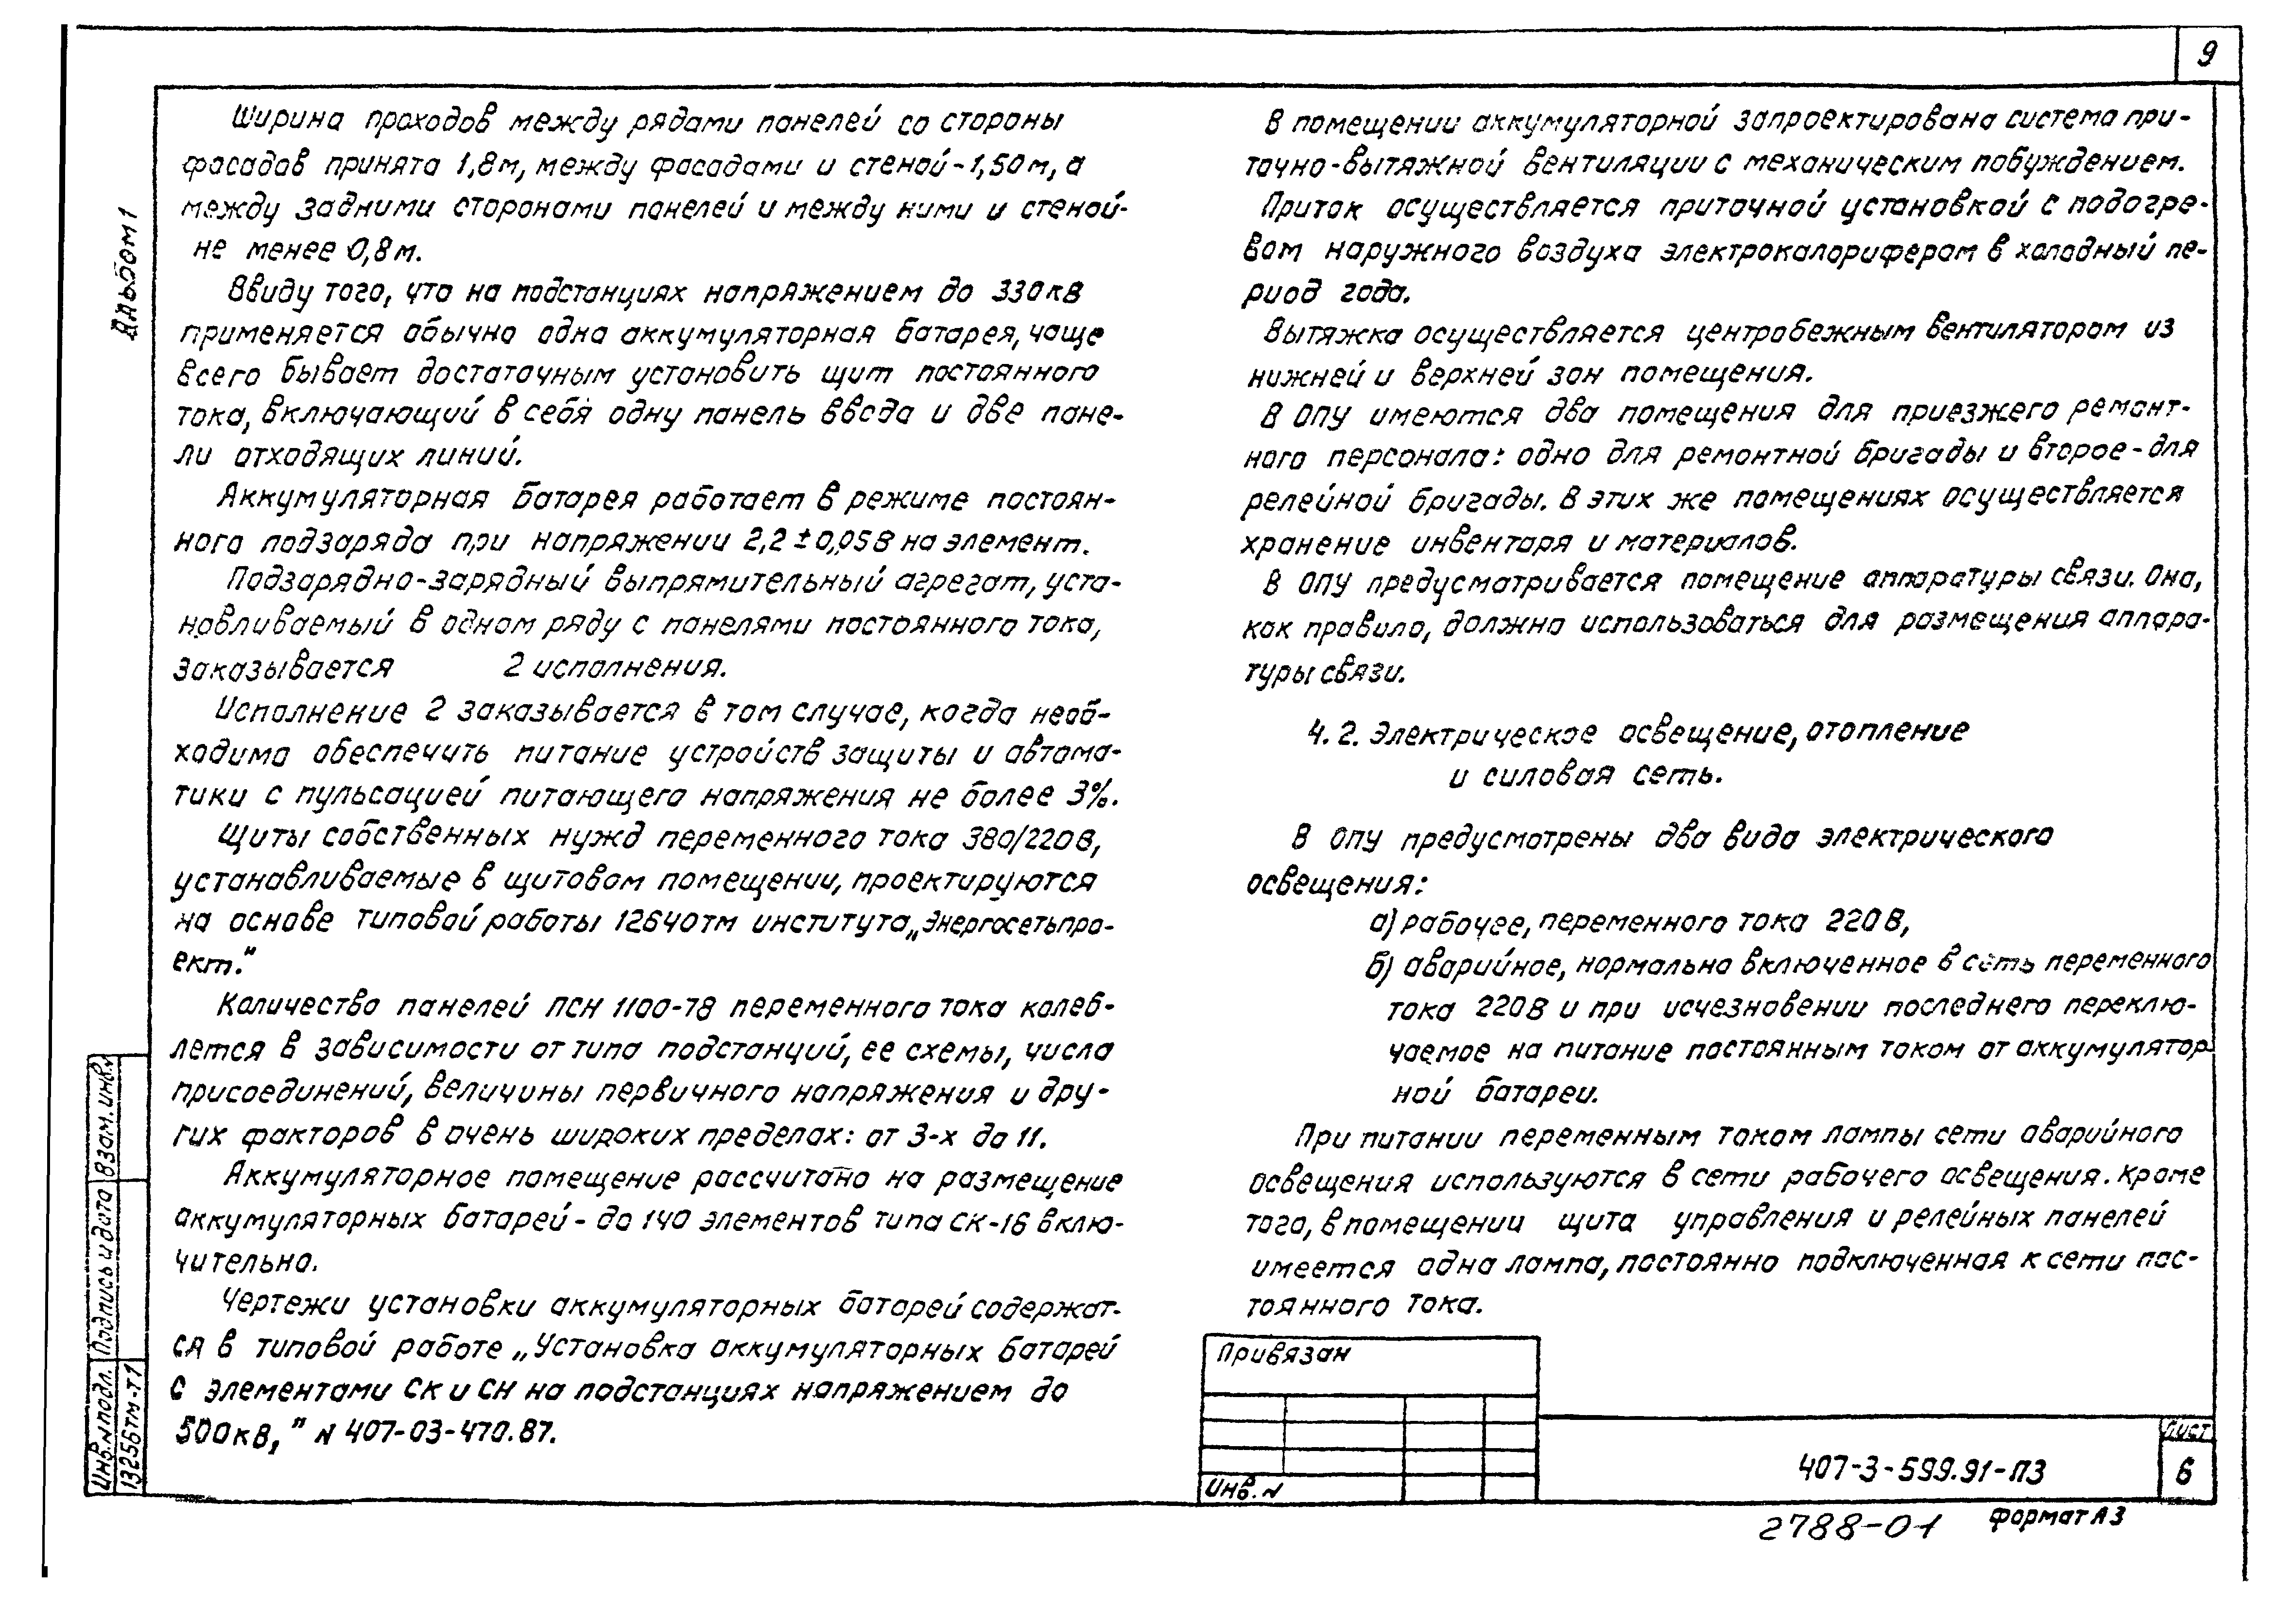 9
Альбом 1
Ширина проходов между рядами панелей со стороны
фасадов принята 1,8м, между фасадами и стеной-1,50м, а
между задними сторонами панелей и между ними и стеной-
не менее 0,8м.
Ввиду того, что на подстанциях напряжением до 330кВ
применяется обычно одна аккумуляторная батарея, чаще
всего бывает достаточным установить щит постоянного
тока, включающий в себя одну панель ввода и две пане-
ли отходящих линий.
Аккумуляторная батарея работает в режиме постоян-
ного подзаряда при напряжении 2,2±0,05В на элемент.
Подзарядно-зарядный выпрямительный агрегат, уста-
новливаемый в одном ряду с панелями постоянного тока,
заказывается 2 исполнения.
Исполнение 2 заказывается в том случае, когда необ-
ходимо обеспечить питание устройств защиты и автома-
тики с пульсацией питающего напряжения не более 3%.
Щиты собственных нужд переменного тока 380/220В,
устанавливаемые в щитовом помещении, проектируются
на основе типовой работы 12640тм института „Энергосетьпро-
ект."
Количество панелей ПСН 1100-78 переменного тока колеб-
лется в зависимости от типа подстанций, ее схемы, числа
присоединений, величины первичного напряжения и дру-
гих факторов в очень широких пределах: от 3-х до 11.
Аккумуляторное помещение рассчитано на размещение
аккумуляторных батарей - до 140 элементов типа СК-16 вклю-
чительно.
Чертежи установки аккумуляторных батарей содержат-
ся в типовой работе „Установка аккумуляторных батарей
с элементами СК и СН на подстанциях напряжением до
500кВ," N 407-03-470.87.
В помещении аккумуляторной запроектирована система при-
точно-вытяжной вентиляции с механическим побуждением.
Приток осуществляется приточной установкой с подогре-
вом наружного воздуха электрокалорифером в холодный пе-
риод года.
Вытяжка осуществляется центробежным вентилятором из
нижней и верхней зон помещения.
В ОПУ имеются два помещения для приезжего ремонт-
ного персонала: одно для ремонтной бригады и второе-для
релейной бригады. В этих же помещениях осуществляется
хранение инвентаря и материалов.
В ОПУ предусматривается помещение аппаратуры связи. Оно,
как правило, должно использоваться для размещения аппара-
туры связи.
4.2. Электрическое освещение, отопление
и силовая сеть.
В ОПУ предусмотрены два вида электрического
освещения:
а) рабочее, переменного тока 220В,
б) аварийное, нормально включенное в сеть переменного
тока 220В и при исчезновении последнего переклю-
чаемое на питание постоянным током от аккумулятор-
ной батареи.
При питании переменным током лампы сети аварийного
освещения используются в сети рабочего освещения. Кроме
того, в помещении щита управления и релейных панелей
имеется одна лампа, постоянно подключенная к сети пос-
тоянного тока.
Привязан
Инв. N
407-3-599.91-ПЗ
Лист
6
2788-01
Формат А3
Взам. инв. N
Подпись и дата
Инв. N подл.
13256тм-т1